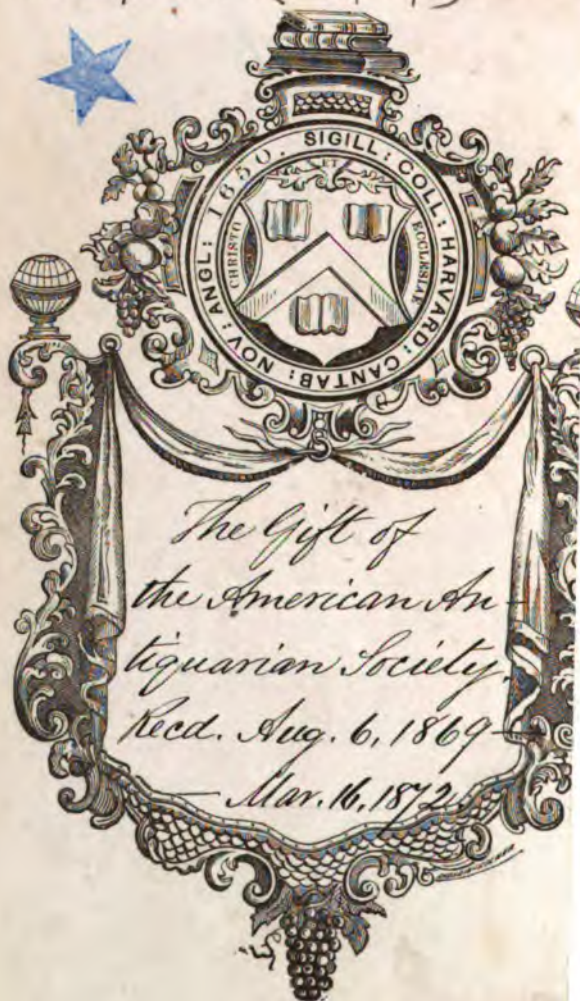 SIGILL: COLL: HARVARD: CANTAB: NOV: ANGL: 1650.
ET
CHRISTO
ECCLESIAE
The Gift of
the American An-
tiquarian Society.
Recd. Aug. 6, 1869 -
- Mar. 16, 1872.